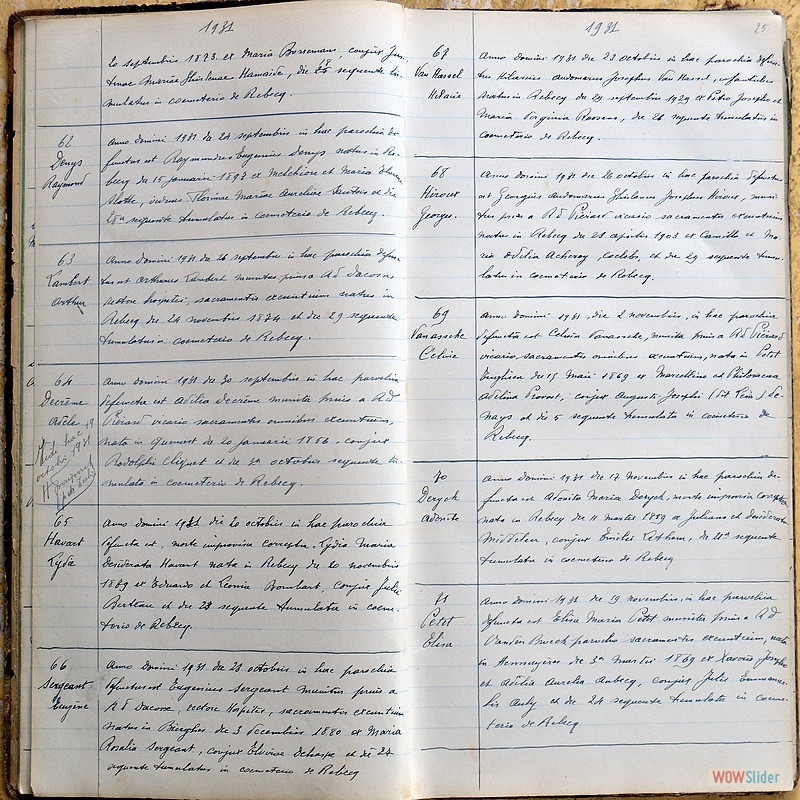 1931
20 septembris 1893 ex Maria Borremans, conjux Jus-
tinae Mariae Ghislenae Hamaide, die sequente tu-
mulatus in coemeterio de Rebecq.
62
Denys
Raymond
Anno domini 1931 die 24 septembris in hac parochia de-
functus est Raymundus Eugenius Denys natus in Re-
becq die 15 januarii 1897 ex Melchiore et Maria Elvira
viduus Florinae Mariae Aureliae et die
28a sequente tumulatus in coemeterio de Rebecq.
63
Lambert
Arthur
Anno domini 1931 die 26 septembris in hac parochia defunc-
tus est Arthurus Lambert munitus prius a Rd Dacosse
rectore hospitii, sacramentis exeuntium natus in
Rebecq die 24 novembris 1874 et die 29 sequente
tumulatus in coemeterio de Rebecq.
64
Decrême
Adèle
Anno domini 1931 die 30 septembris in hac parochia
defuncta est Adelia Decrême munita prius a Rd
Piérard vicario sacramentis omnibus exeuntium,
nata in Quenast die 20 januarii 1856, conjux
Rodolphi Cliquet et die 3a octobris sequente tu-
mulata in coemeterio de Rebecq.
hac 19
1931
65
Havart
Lydie
Anno domini 1931 die 20 octobris in hac parochia
defuncta est, morte improvisa correpta, Lydia Maria
Desiderata Havart nata in Rebecq die 20 novembris
1889 ex Eduardo et Leonia Bombart, conjux Julii
Berteau et die 23 sequente tumulata in coeme-
terio de Rebecq.
66
Sergeant
Eugène
Anno domini 1931 die 21 octobris in hac parochia
defunctus est Eugenius Sergeant munitus prius a
Rd Dacosse, rectore hospitii, sacramentis exeuntium
natus in Bierghes die 3 decembris 1880 ex Maria
Rosalia Sergeant, conjux Elvirae et die 24
sequente tumulatus in coemeterio de Rebecq
1931
25
67
Van Hassel
Hilaire
Anno domini 1931 die 23 octobris in hac parochia defunc-
tus Hilarius Audomarus Josephus Van Hassel, infantulus
natus in Rebecq die 29 septembris 1929 ex Petro Josepho et
Maria Virginia Roosens, die 26 sequente tumulatus in
coemeterio de Rebecq.
68
Hiroux
Georges.
Anno domini 1931 die 26 octobris in hac parochia defunctus
est Georgius Audomarus Ghislenus Josephus Hiroux, muni-
tus prius a Rd Piérard vicario sacramentis exeuntium
natus in Rebecq die 23 aprilis 1903 ex Camillo et Ma-
ria Odilia Acheroy, coelebs, et die 29 sequente tumu-
latus in coemeterio de Rebecq.
69
Vanassche
Céline
Anno domini 1931, die 2 novembris, in hac parochia
defuncta est Celina Vanassche, munita prius a Rd Piérard
vicario, sacramentis omnibus exeuntium, nata in Petit
Enghien die 15 Maii 1869 ex Marcellino et Philomena
Adelina Provost, conjux Augusti Josephi (dit Léon) De-
nays et die 5 sequente tumulata in coemeterio de
Rebecq.
70
Deryck
Adonite
Anno domini 1931 die 17 novembris in hac parochia de-
functa est Adonita Maria Deryck, morte improvisa correpta
nata in Rebecq die 11 martis 1859 ex Juliano et Desiderata
conjux Emilii die 21a sequente
tumulata in coemeterio de Rebecq
71
Petit
Elisa
Anno domini 1931 die 19 novembris, in hac parochia
defuncta est Elisa Maria Petit munita prius a Rd
Vanden Broeck parocho sacramentis exeuntium, nata
in Hennuyères die 3a Martii 1869 ex Xaverio Josepho
et Adelia Aurelia conjux Julii Emmanue-
lis et die 24 sequente tumulata in coeme-
terio de Rebecq
WOWSlider